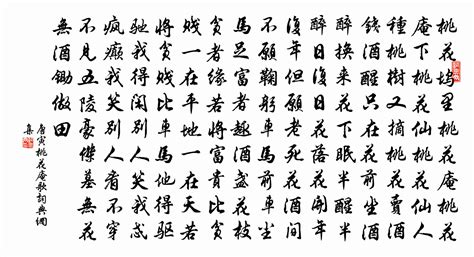 桃花塢里桃花庵桃花
庵下桃花仙桃花仙人
種桃樹又摘桃花賣酒
錢酒醒只在花前坐酒
醉換來花下眠半醒半
醉日復日花落花開年
復年但願老死花酒間
不願鞠躬車馬前車塵
馬足富者趣酒盞花枝
貧者緣若將富貴比貧
賤一在平地一在天若
將貧賤比車馬他得驅
馳我得閑別人笑我忒
瘋癲我笑別人看不穿
不見五陵豪傑墓無花
無酒鋤做田
唐寅桃花庵歌詞典網
集